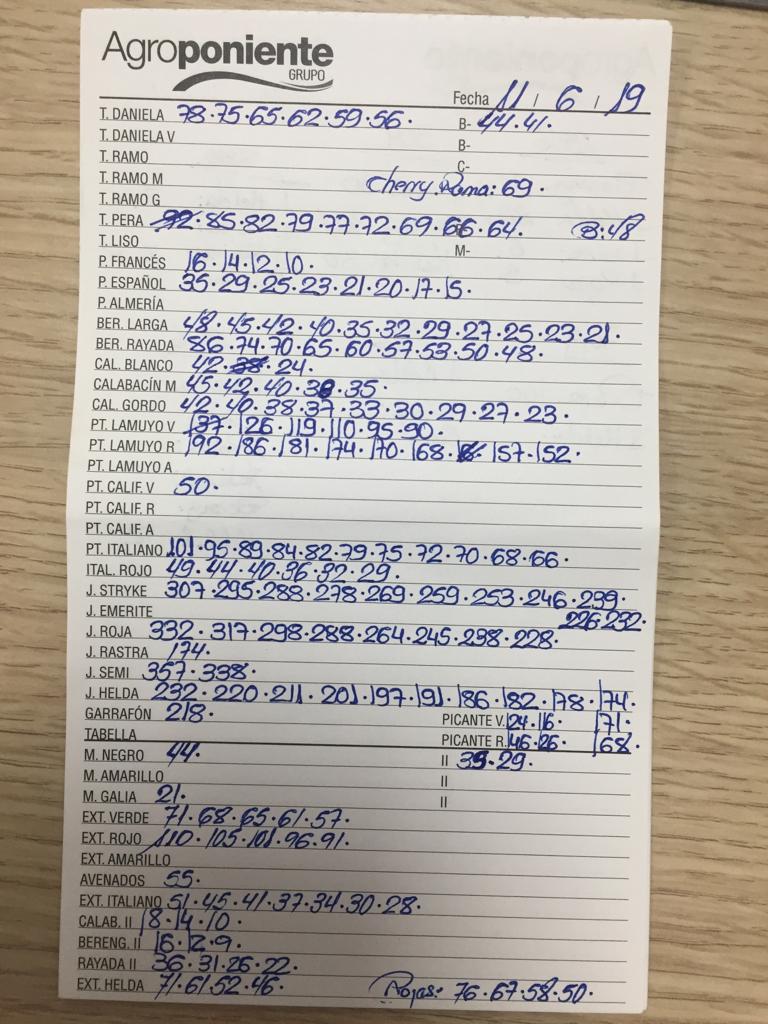 Agroponiente
GRUPO
Fecha 11 / 6 / 19
T. DANIELA 78·75·65·62·59·56· B- 44·41·
T. DANIELA V B-
T. RAMO C-
T. RAMO M Cherry Rama: 69·
T. RAMO G
T. PERA 92·85·82·79·77·72·69·66·64· B:48
T. LISO M-
P. FRANCÉS 16·14·12·10·
P. ESPAÑOL 35·29·25·23·21·20·17·15·
P. ALMERÍA
BER. LARGA 48·45·42·40·35·32·29·27·25·23·21·
BER. RAYADA 86·74·70·65·60·57·53·50·48·
CAL. BLANCO 42·38·24·
CALABACÍN M 45·42·40·38·35·
CAL. GORDO 42·40·38·37·33·30·29·27·23·
PT. LAMUYO V 137·126·119·110·95·90·
PT. LAMUYO R 192·186·181·174·170·168·157·152·
PT. LAMUYO A
PT. CALIF. V 50·
PT. CALIF. R
PT. CALIF. A
PT. ITALIANO 101·95·89·84·82·79·75·72·70·68·66·
ITAL. ROJO 49·44·40·36·32·29·
J. STRYKE 307·295·288·278·269·259·253·246·239·
J. EMERITE 226·232·
J. ROJA 332·317·298·288·264·245·238·228·
J. RASTRA 174·
J. SEMI 357·338·
J. HELDA 232·220·211·201·197·191·186·182·178·174·
GARRAFÓN 218· PICANTE V. 124·116· 171·
TABELLA PICANTE R. 146·126· 168·
M. NEGRO 44· II 35·29·
M. AMARILLO II
M. GALIA 21· II
EXT. VERDE 71·68·65·61·57·
EXT. ROJO 110·105·101·96·91·
EXT. AMARILLO
AVENADOS 55·
EXT. ITALIANO 51·45·41·37·34·30·28·
CALAB. II 18·14·10·
BERENG. II 16·12·9·
RAYADA II 36·31·26·22·
EXT. HELDA 71·61·52·46· Rojas: 76·67·58·50·